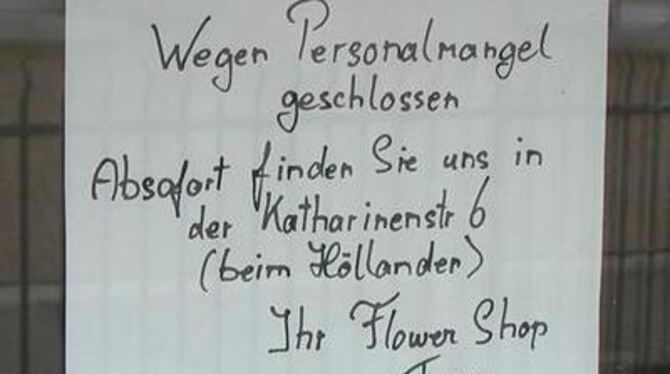 Wegen Personalmangel
geschlossen
Absofort finden Sie uns in
der Katharinenstr 6
(beim Höllander)
Ihr Flower Shop